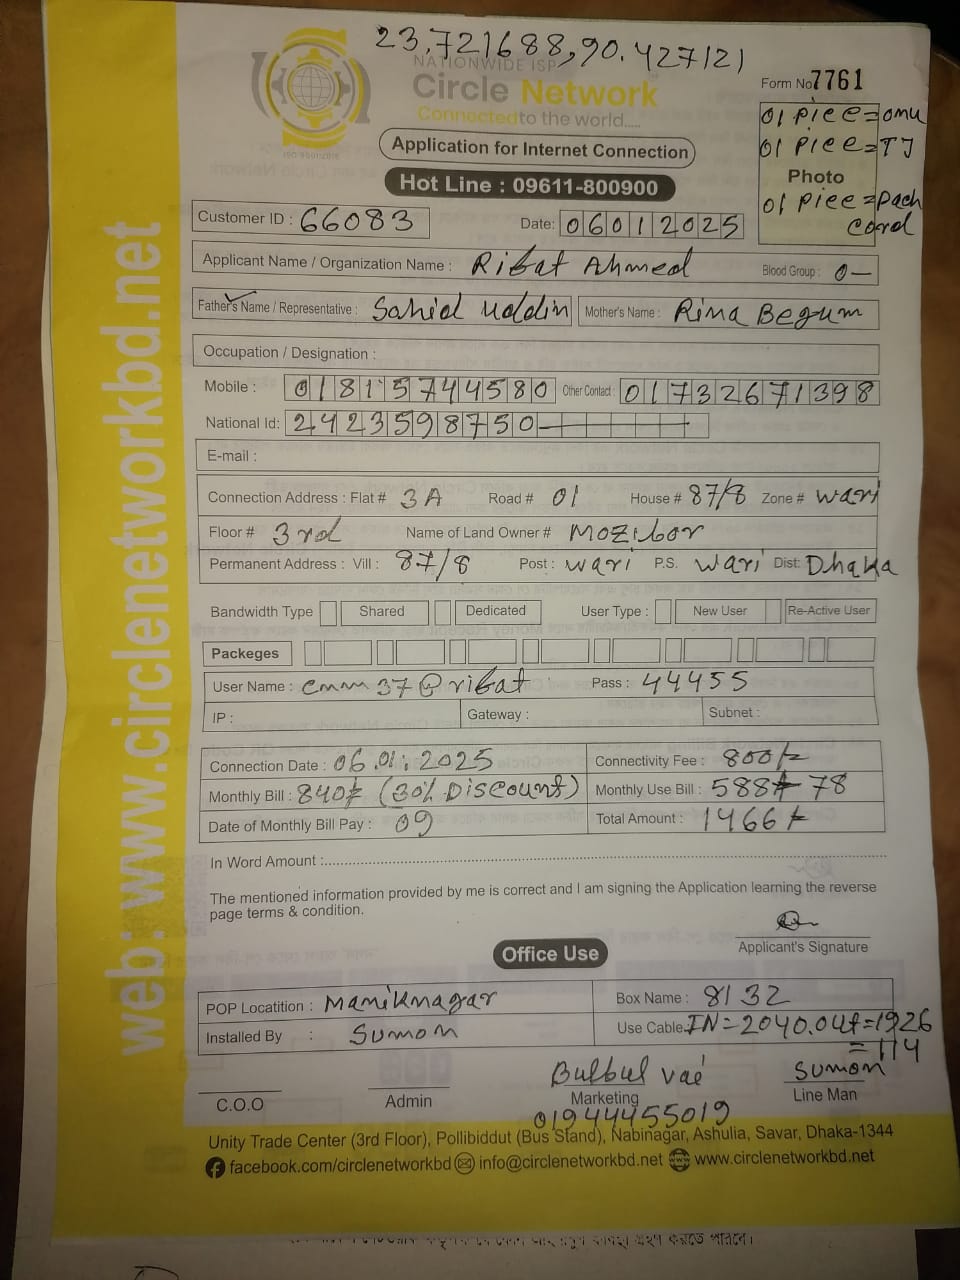 23.721688,90.427121
NATIONWIDE ISP
Circle Network
Connected to the world.....
ISO 9001:2015
Form No 7761
01 piee=omu
01 piee=TJ
Photo
01 piee=pach
cord
Application for Internet Connection
Hot Line : 09611-800900
Customer ID : 66083 Date: 06012025
Applicant Name / Organization Name : Rifat Ahmed Blood Group : O–
Father's Name / Representative : Sahid Uddin Mother's Name : Rima Begum
Occupation / Designation :
Mobile : 01815744580 Other Contact : 01732671398
National Id: 2423598750
E-mail :
Connection Address : Flat # 3A Road # 01 House # 87/8 Zone # wari
Floor # 3rd Name of Land Owner # Mozibor
Permanent Address : Vill : 87/8 Post : wari P.S. wari Dist: Dhaka
Bandwidth Type Shared Dedicated User Type : New User Re-Active User
Packeges
User Name : cmm37@rifat Pass : 44455
IP : Gateway : Subnet :
Connection Date : 06.01.2025 Connectivity Fee : 800/-
Monthly Bill : 840/- (30% Discount) Monthly Use Bill : 588+78
Date of Monthly Bill Pay : 09 Total Amount : 1466/-
In Word Amount :
The mentioned information provided by me is correct and I am signing the Application learning the reverse
page terms & condition.
Applicant's Signature
Office Use
POP Locatition : Maniknagar Box Name : 8132
Installed By : Sumon Use Cable IN=2040.Out=1926
=114
Bulbul vai Sumon
C.O.O Admin Marketing Line Man
01944455019
Unity Trade Center (3rd Floor), Pollibiddut (Bus Stand), Nabinagar, Ashulia, Savar, Dhaka-1344
facebook.com/circlenetworkbd info@circlenetworkbd.net www.circlenetworkbd.net
web: www.circlenetworkbd.net